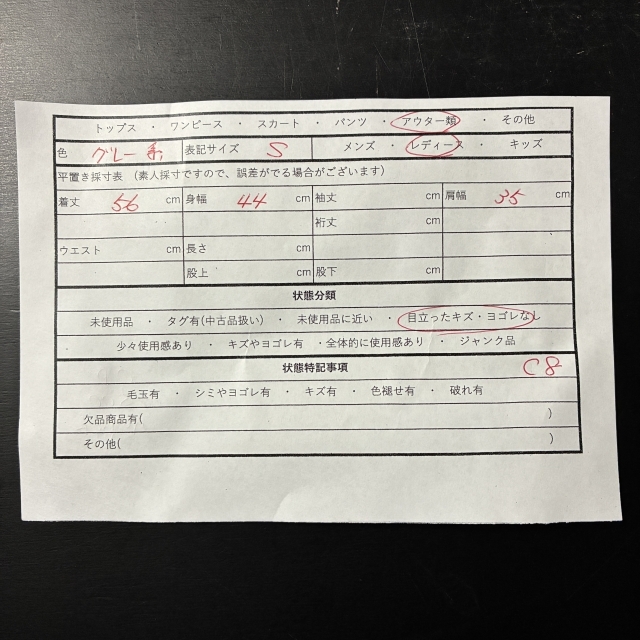 トップス ・ ワンピース ・ スカート ・ パンツ ・ アウター類 ・ その他
色 グレー系 表記サイズ S メンズ ・ レディース ・ キッズ
平置き採寸表 (素人採寸ですので、誤差がでる場合がございます)
着丈 56 cm 身幅 44 cm 袖丈 cm 肩幅 35 cm
裄丈 cm
ウエスト cm 長さ cm
股上 cm 股下 cm
状態分類
未使用品 ・ タグ有(中古品扱い) ・ 未使用品に近い ・ 目立ったキズ・ヨゴレなし
少々使用感あり ・ キズやヨゴレ有 ・全体的に使用感あり ・ ジャンク品
状態特記事項 C8
毛玉有 ・ シミやヨゴレ有 ・ キズ有 ・ 色褪せ有 ・ 破れ有
欠品商品有( )
その他( )